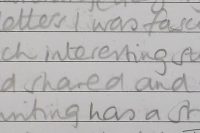 letters I was fasc
ch interesting st
d shared and
writing has a st